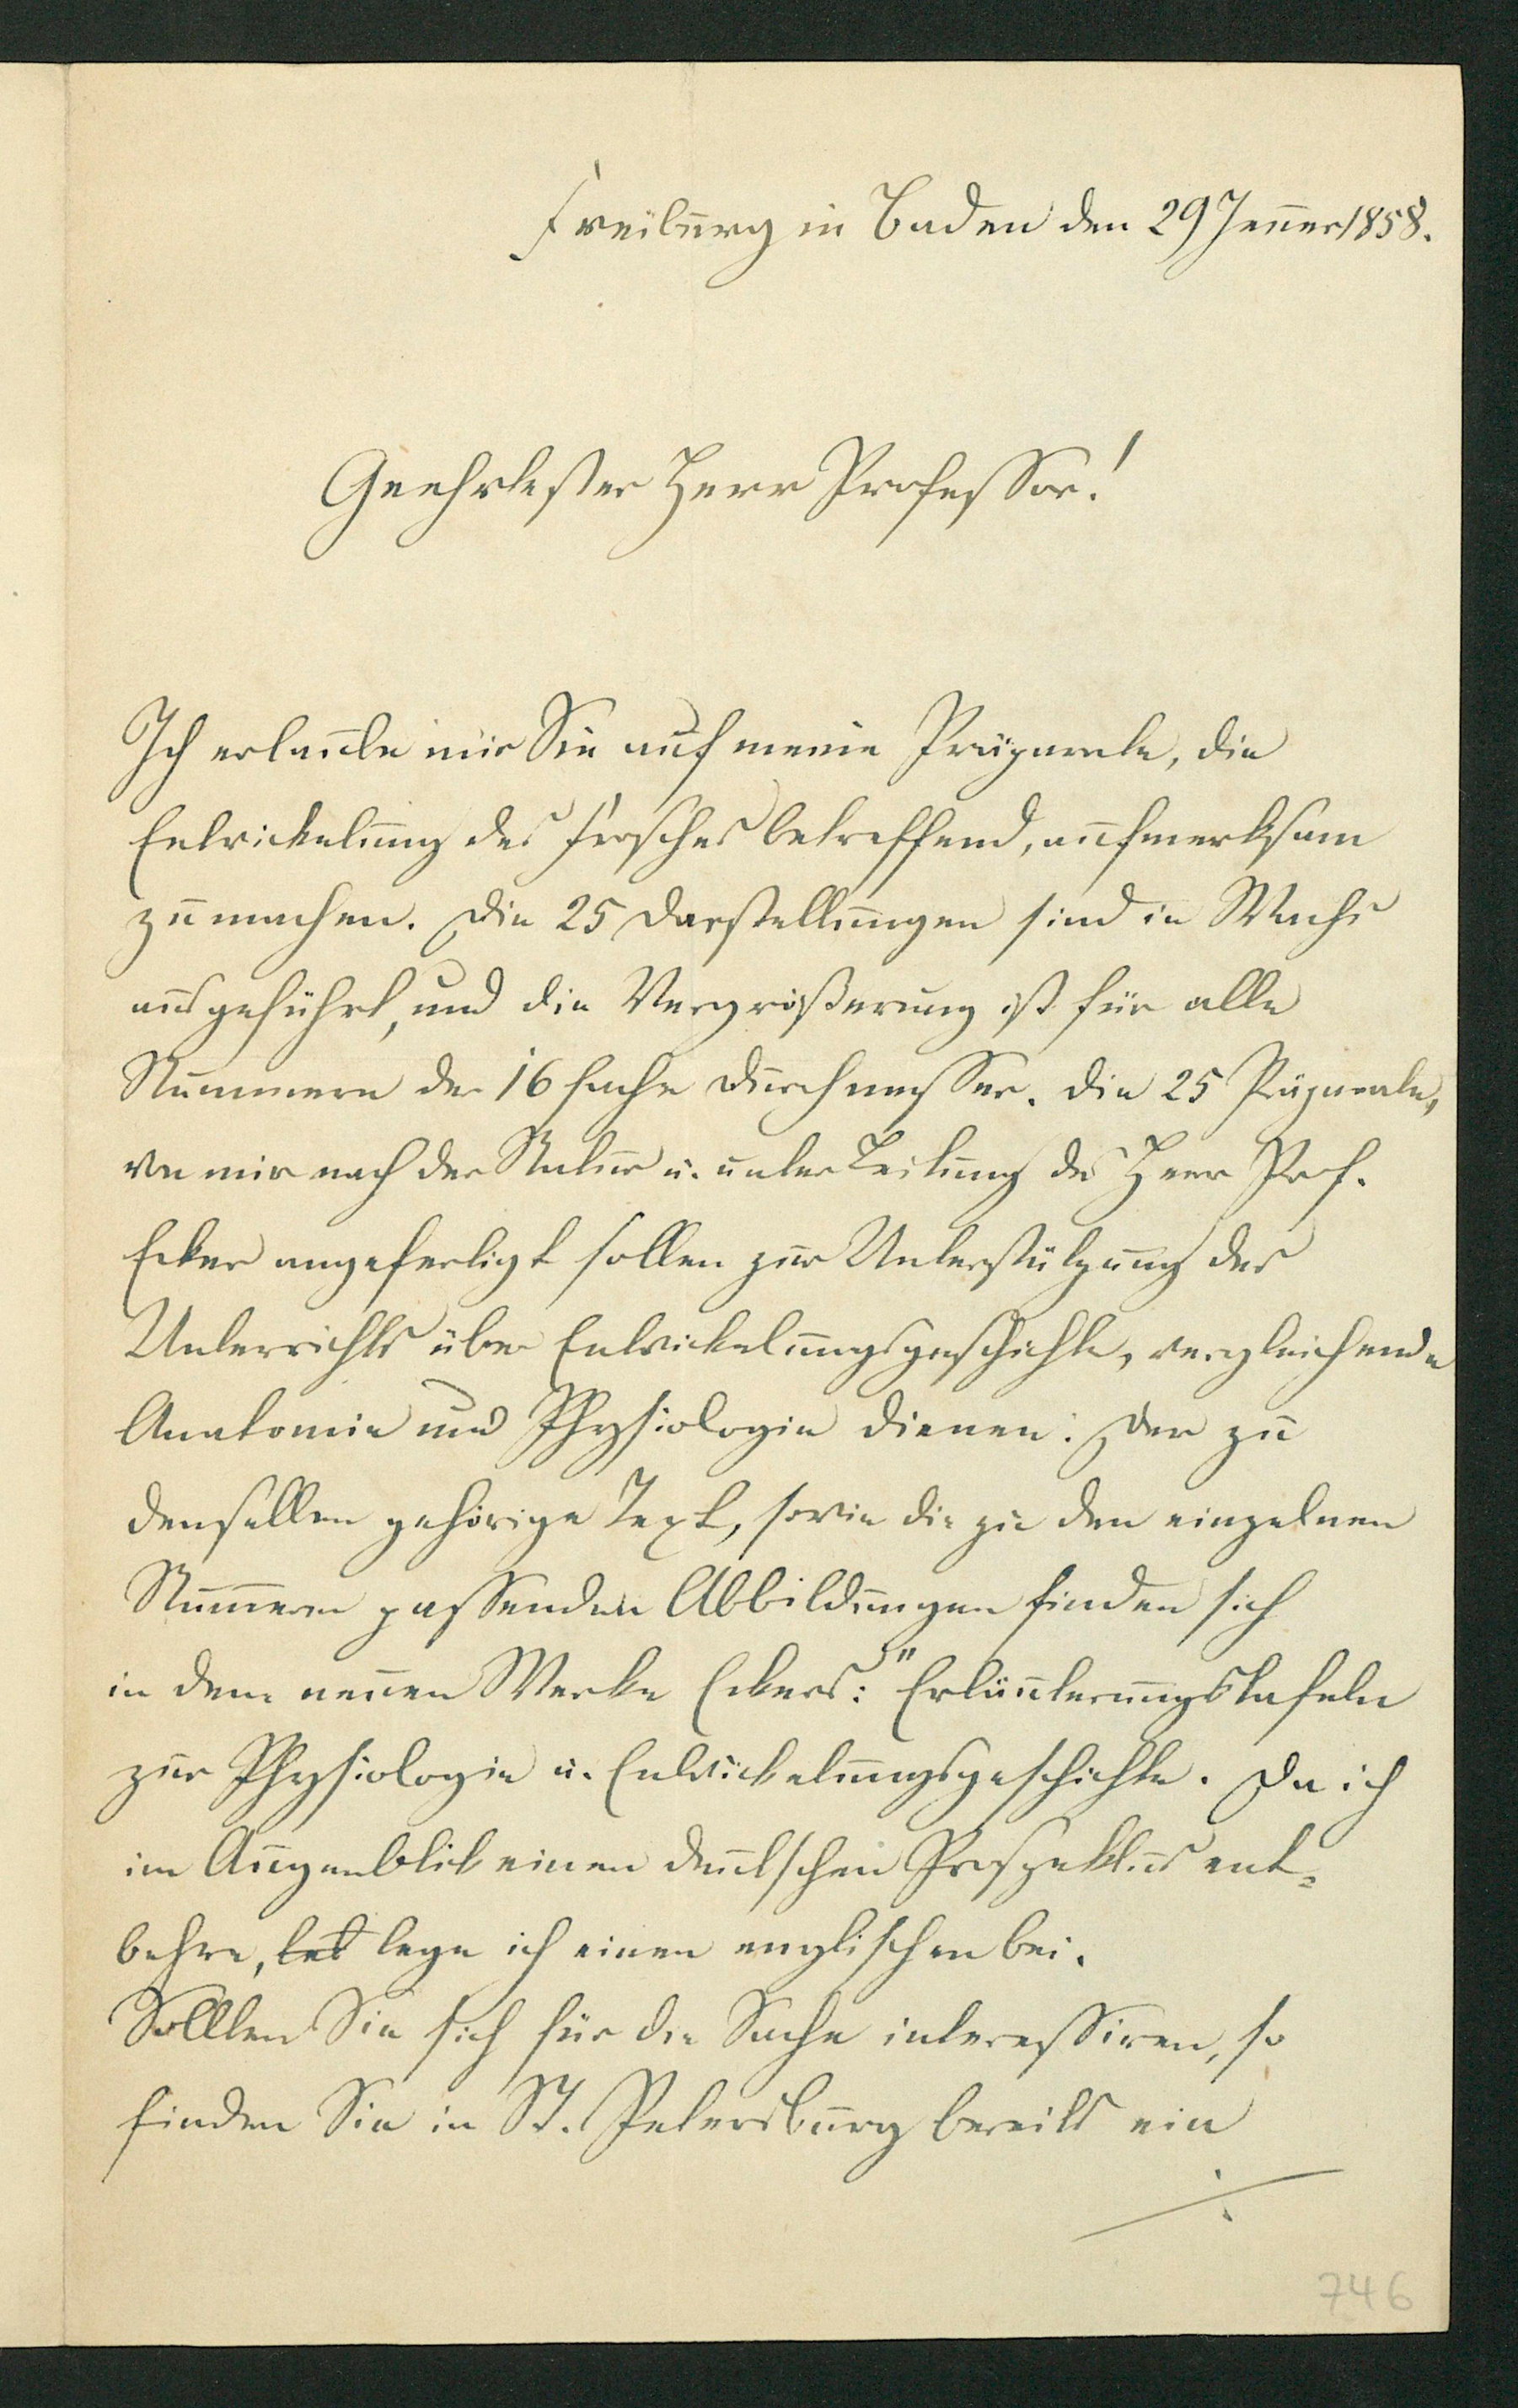 Freiburg in Baden den 29 Jenner 1858.
Geehrtester Herr Professor!
Ich erlaube mir Sie auf meine Präparate, die
Entwickelung des Frosches betreffend, aufmerksam
zu machen. Die 25 Darstellungen sind in Wachs
ausgeführt, und die Vergrößerung ist für alle
Nummern der 16 fache Durchmesser. Die 25 Präparate,
von mir nach der Natur u. unter Leitung des Herr Prof.
Ecker angefertigt sollen zur Unterstützung des
Unterrichts über Entwickelungsgeschichte, vergleichende
Anatomie und Physiologie dienen. Der zu
denselben gehörige Text, sowie die zu den einzelnen
Nummern passenden Abbildungen finden sich
in dem neuen Werke Eckers: "Erläuterungstafeln
zur Physiologie u. Entwickelungsgeschichte. Da ich
im Augenblik einen deutschen Prospektus ent-
behre, let lege ich einen englischen bei.
Sollten Sie sich für die Sache interessiren, so
finden Sie in St. Petersburg bereits ein
746